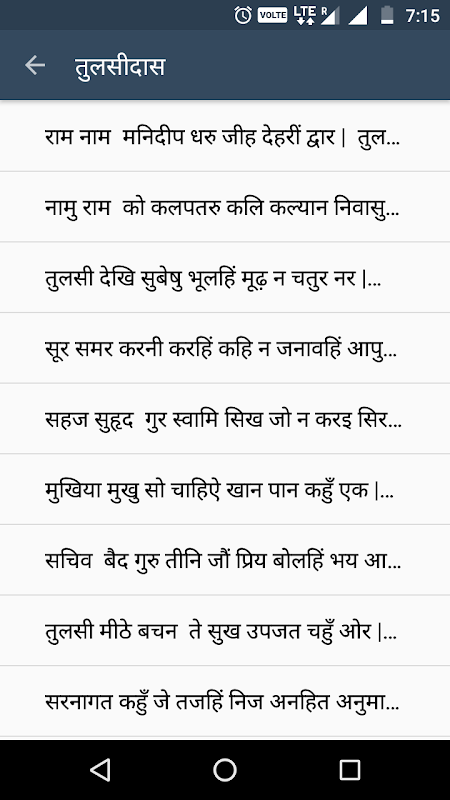 VOLTE LTE R 7:15
तुलसीदास
राम नाम मनिदीप धरु जीह देहरीं द्वार | तुल...
नामु राम को कलपतरु कलि कल्यान निवासु...
तुलसी देखि सुबेषु भूलहिं मूढ़ न चतुर नर |...
सूर समर करनी करहिं कहि न जनावहिं आपु...
सहज सुहृद गुर स्वामि सिख जो न करइ सिर...
मुखिया मुखु सो चाहिऐ खान पान कहुँ एक |...
सचिव बैद गुरु तीनि जौं प्रिय बोलहिं भय आ...
तुलसी मीठे बचन ते सुख उपजत चहुँ ओर |...
सरनागत कहुँ जे तजहिं निज अनहित अनुमा...